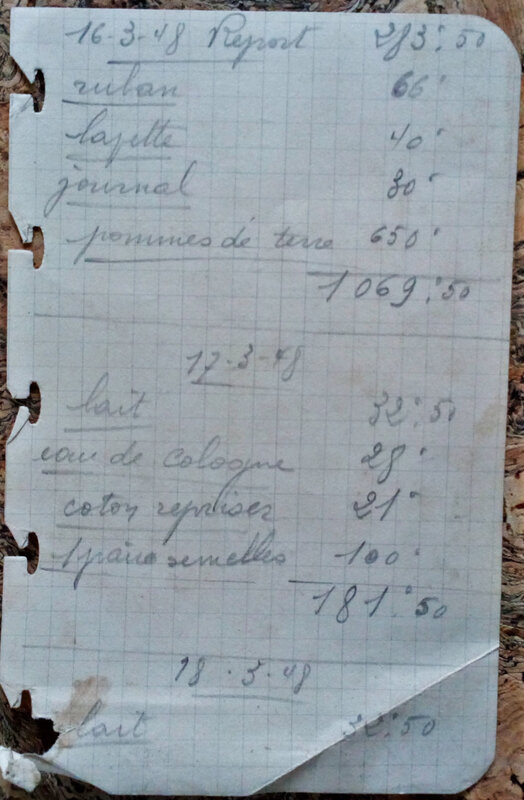 16-3-48 Report 283.50
ruban 66
40
journal 30
pommes de terre 650
1069.50
17-3-48
lait 32.50
eau de cologne 28
coton repriser 21
1 paire semelles 100
181.50
18-3-48
lait 32.50